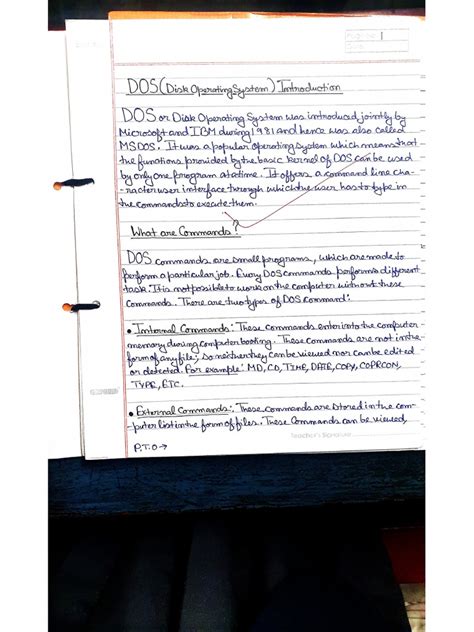 Page No. 1
Date
DOS (Disk Operating System) Introduction
DOS or Disk Operating System was introduced jointly by
Microsoft and IBM during 1981 and hence was also called
MSDOS. It was a popular operating system which means that
the functions provided by the basic kernel of DOS can be used
by only one program at a time. It offers a command line cha-
racter user interface through which the user has to type in
the commands to execute them.
What are Commands?
DOS commands are small programs, which are made to
perform a particular job. Every DOS commands performs different
task. It is not possible to work on the computer without these
commands. There are two types of DOS command:
• Internal Commands: These commands enter into the computer
memory during computer booting. These commands are not in the
form of any file, so neither they can be viewed nor can be edited
or detected. For example: MD, CD, TIME, DATE, COPY, COPRCON,
TYPE, ETC.
• External Commands: These commands are stored in the com-
-puter list in the form of files. These Commands can be viewed,
Teacher's Signature
P.T.O→